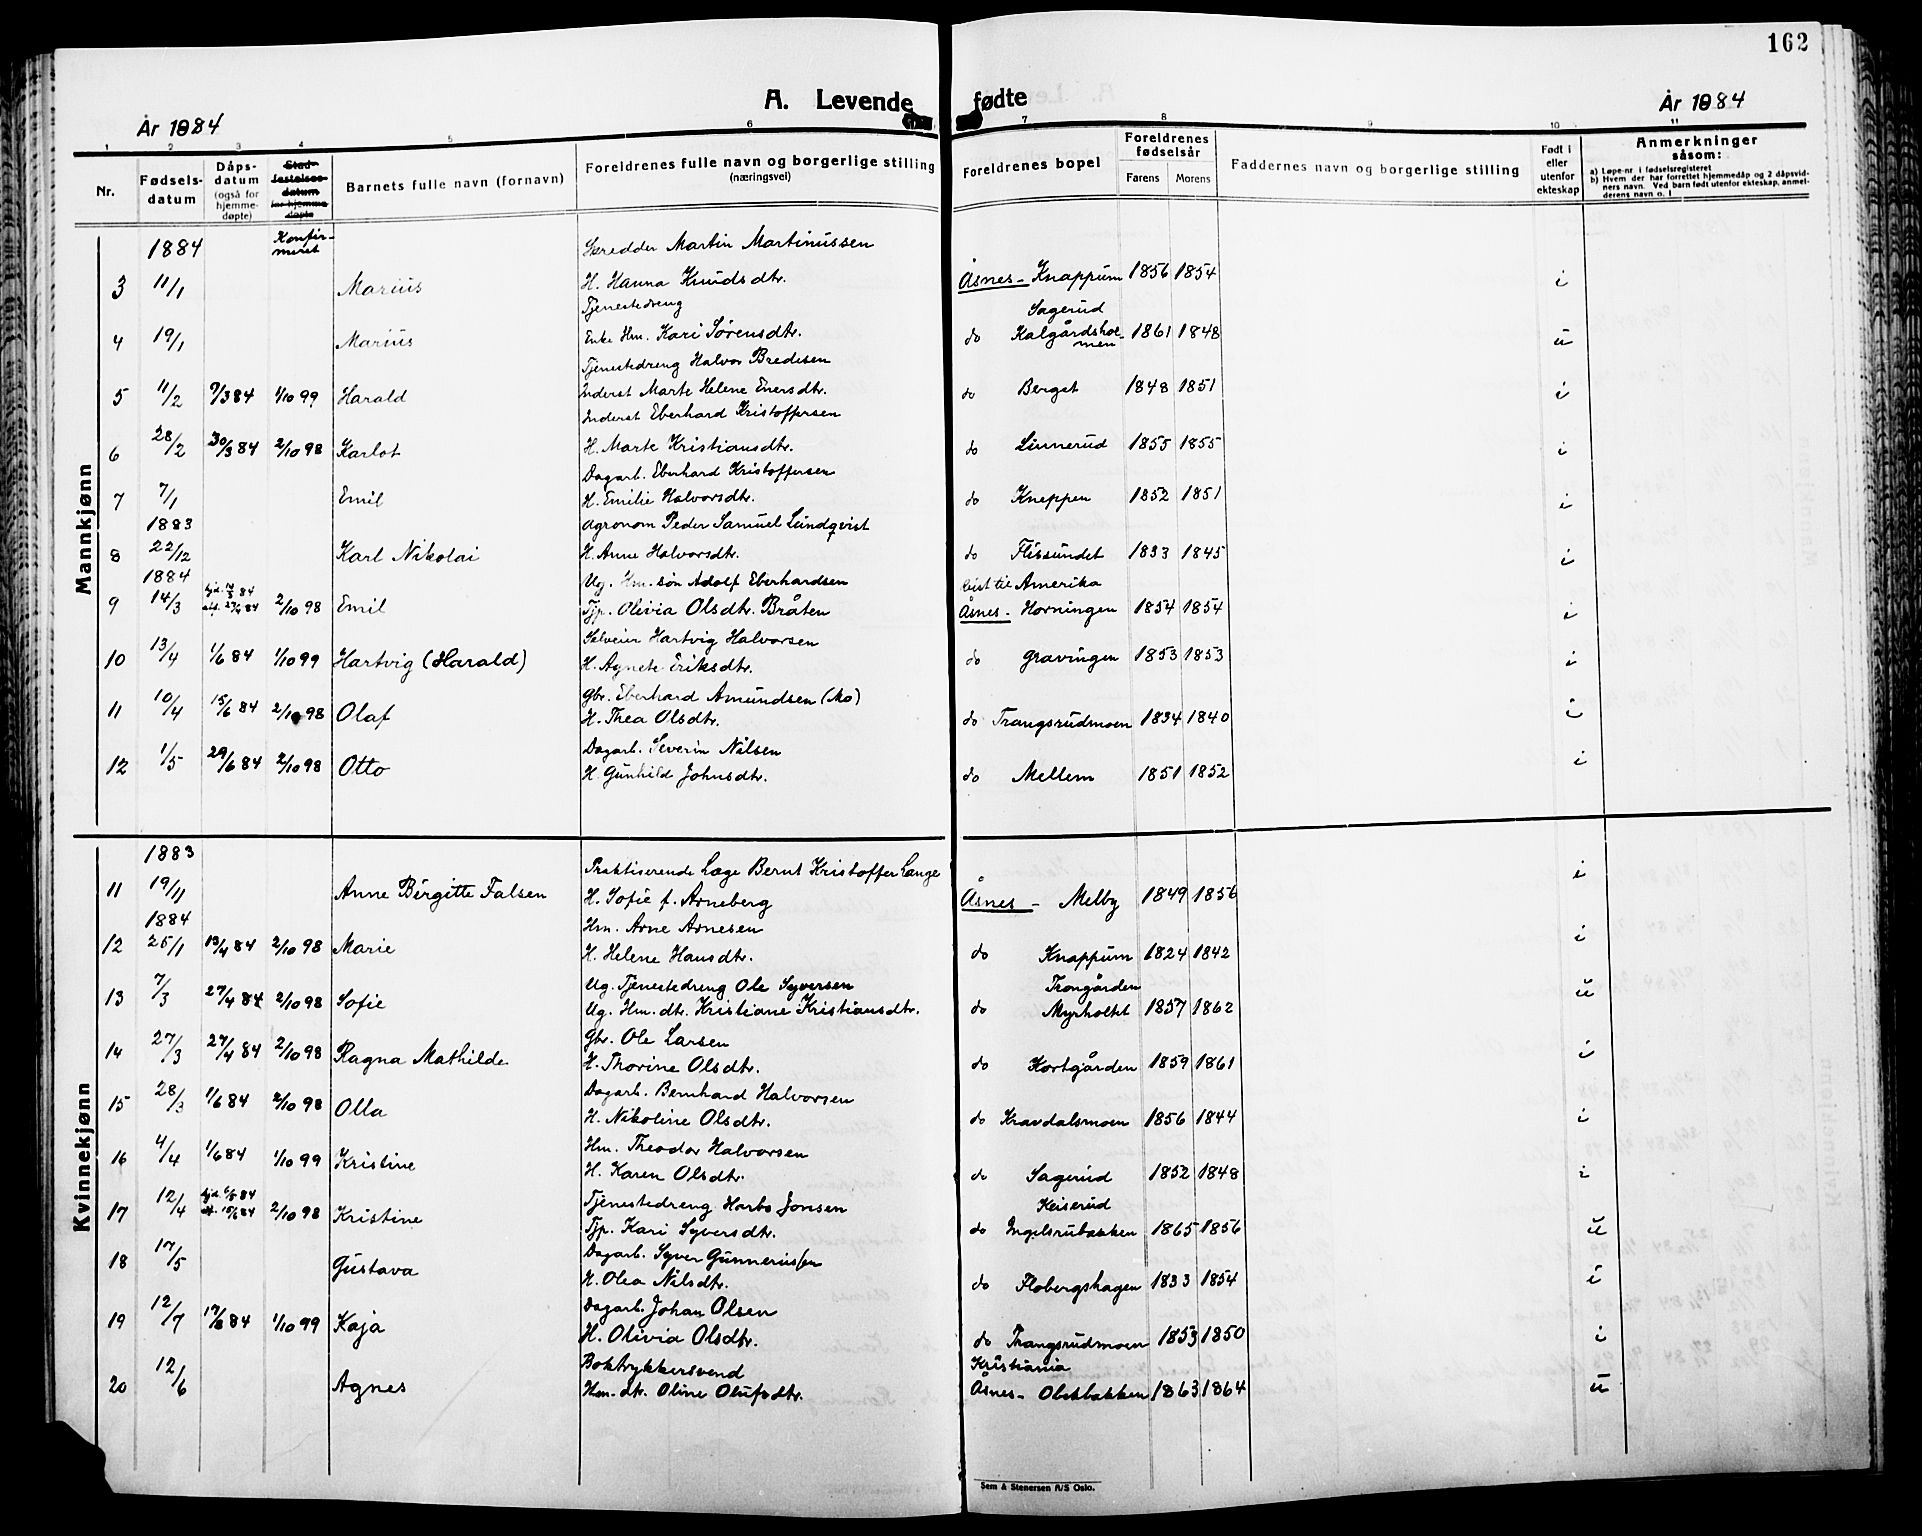 162
A. Levende fødte
År 1884
År 1884
1 2 3 4 5 6 7 8 9 10 11
Nr. Fødsels-datum Dåps-datum (også for hjemme-døpte) Stad-festelses-datum for hjemme døpte Barnets fulle navn (fornavn) Foreldrenes fulle navn og borgerlige stilling (næringsvei) Foreldrenes bopel Foreldrenes fødselsår Farens Morens Faddernes navn og borgerlige stilling Født i eller utenfor ekteskap Anmerkninger såsom:
a) Løpe-nr. i fødselsregisteret
b) Hvem der har forrettet hjemmedåp og 2 dåpsvidners navn. Ved barn født utenfor ekteskap, anmelderens navn o. l
Mannkjønn
1884 Konfir-meret Skredder Martin Martinussen
3 11/1 Marius H. Hanna Knudsdtr. Åsnes - Knappum 1856 1854 i
Tjenestedreng Sagerud
4 19/1 Marius Enke Hm. Kari Sørensdtr. do Kalgårdshol-men 1861 1848 u
Tjenestedreng Halvor Bredesen
5 11/2 9/3 84 1/10 99 Harald Inderst Marte Helene Enersdtr. do Berget 1848 1851 i
Inderst Eberhard Kristoffersen
6 28/2 30/3 84 2/10 98 Karlot H. Marte Kristiansdtr. do Linnerud 1855 1855 i
Dagarb. Eberhard Kristoffersen
7 7/1 Emil H. Emilie Halvorsdtr. do Kneppen 1852 1851 i
1883 Agronom Peder Samuel Lundqvist
8 22/12 Karl Nikolai H. Anne Halvorsdtr. do Flissundet 1833 1845 i
1884 Ug. Hm. søn Adolf Eberhardsen reist til Amerika
9 14/3 2/10 98 Emil Tjp. Olivia Olsdtr. Bråten Åsnes - Horningen 1854 1854 i
Selveier Hartvig Halvorsen
10 13/4 1/6 84 1/10 99 Hartvig (Harald) H. Agnete Eriksdtr. do Gravingen 1853 1853 i
Gbr. Eberhard Amundsen (Mo)
11 10/4 15/6 84 2/10 98 Olaf H. Thea Olsdtr. do Trangsrudmoen 1834 1840 i
Dagarb. Severin Nilsen
12 1/5 29/6 84 2/10 98 Otto H. Gunhild Johnsdtr. do Mellem 1851 1852 i
Kvinnekjønn
1883 Praktiserende Læge Bernt Kristoffer Lange
11 19/11 Anne Birgitte Falsen H. Sofie f. Arneberg Åsnes - Melby 1849 1856 i
1884 Hm. Arne Arnesen
12 25/1 13/4 84 2/10 98 Marie H. Helene Hansdtr. do Knappum 1824 1842 i
Ug. Tjenestedreng Ole Syversen Trongården
13 7/3 27/4 84 2/10 98 Sofie Ug. Hm. dtr. Kristiane Kristiansdtr. do Myrholtet 1857 1862 u
Gbr. Ole Larsen
14 27/3 27/4 84 2/10 98 Ragna Mathilde H. Thorine Olsdtr. do Kortgården 1859 1861 i
Dagarb. Bernhard Halvorsen
15 28/3 1/6 84 2/10 98 Olla H. Nikoline Olsdtr. do Kravdalsmoen 1856 1844 i
Hm. Theodor Halvorsen
16 4/4 1/6 84 1/10 99 Kristine H. Karen Olsdtr. do Sagerud 1852 1848 i
Tjenestedreng Harbo Jonsen Keiserud
17 12/4 15/6 84 2/10 98 Kristine Tjp. Kari Syversdtr. do Ingelsrubakken 1865 1856 u
Dagarb. Syver Gunnerussen
18 17/5 Gustava H. Olea Nilsdtr. do Flobergshagen 1833 1854 i
Dagarb. Johan Olsen
19 12/7 17/8 84 1/10 99 Kaja H. Olivia Olsdtr. do Trangsrudmoen 1853 1850 i
Boktrykkersvend Kristiania
20 12/6 Agnes Hm. dtr. Oline Olufsdtr. Åsnes - Obekbakken 1863 1864 u
Sem & Stenersen A/S Oslo.